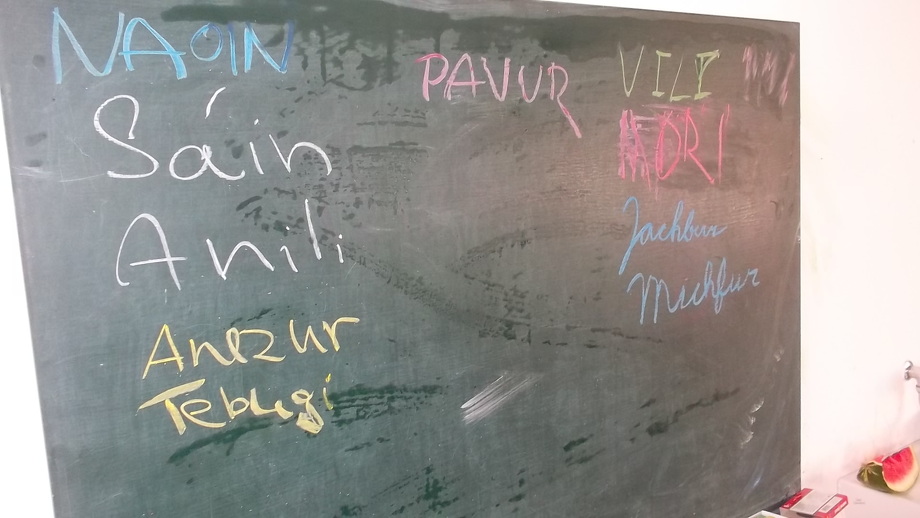 NAOIN
Sáin
Anili
Anezur
Tebugi
PAVUR
VILI
MORI
Jachbur
Michfur